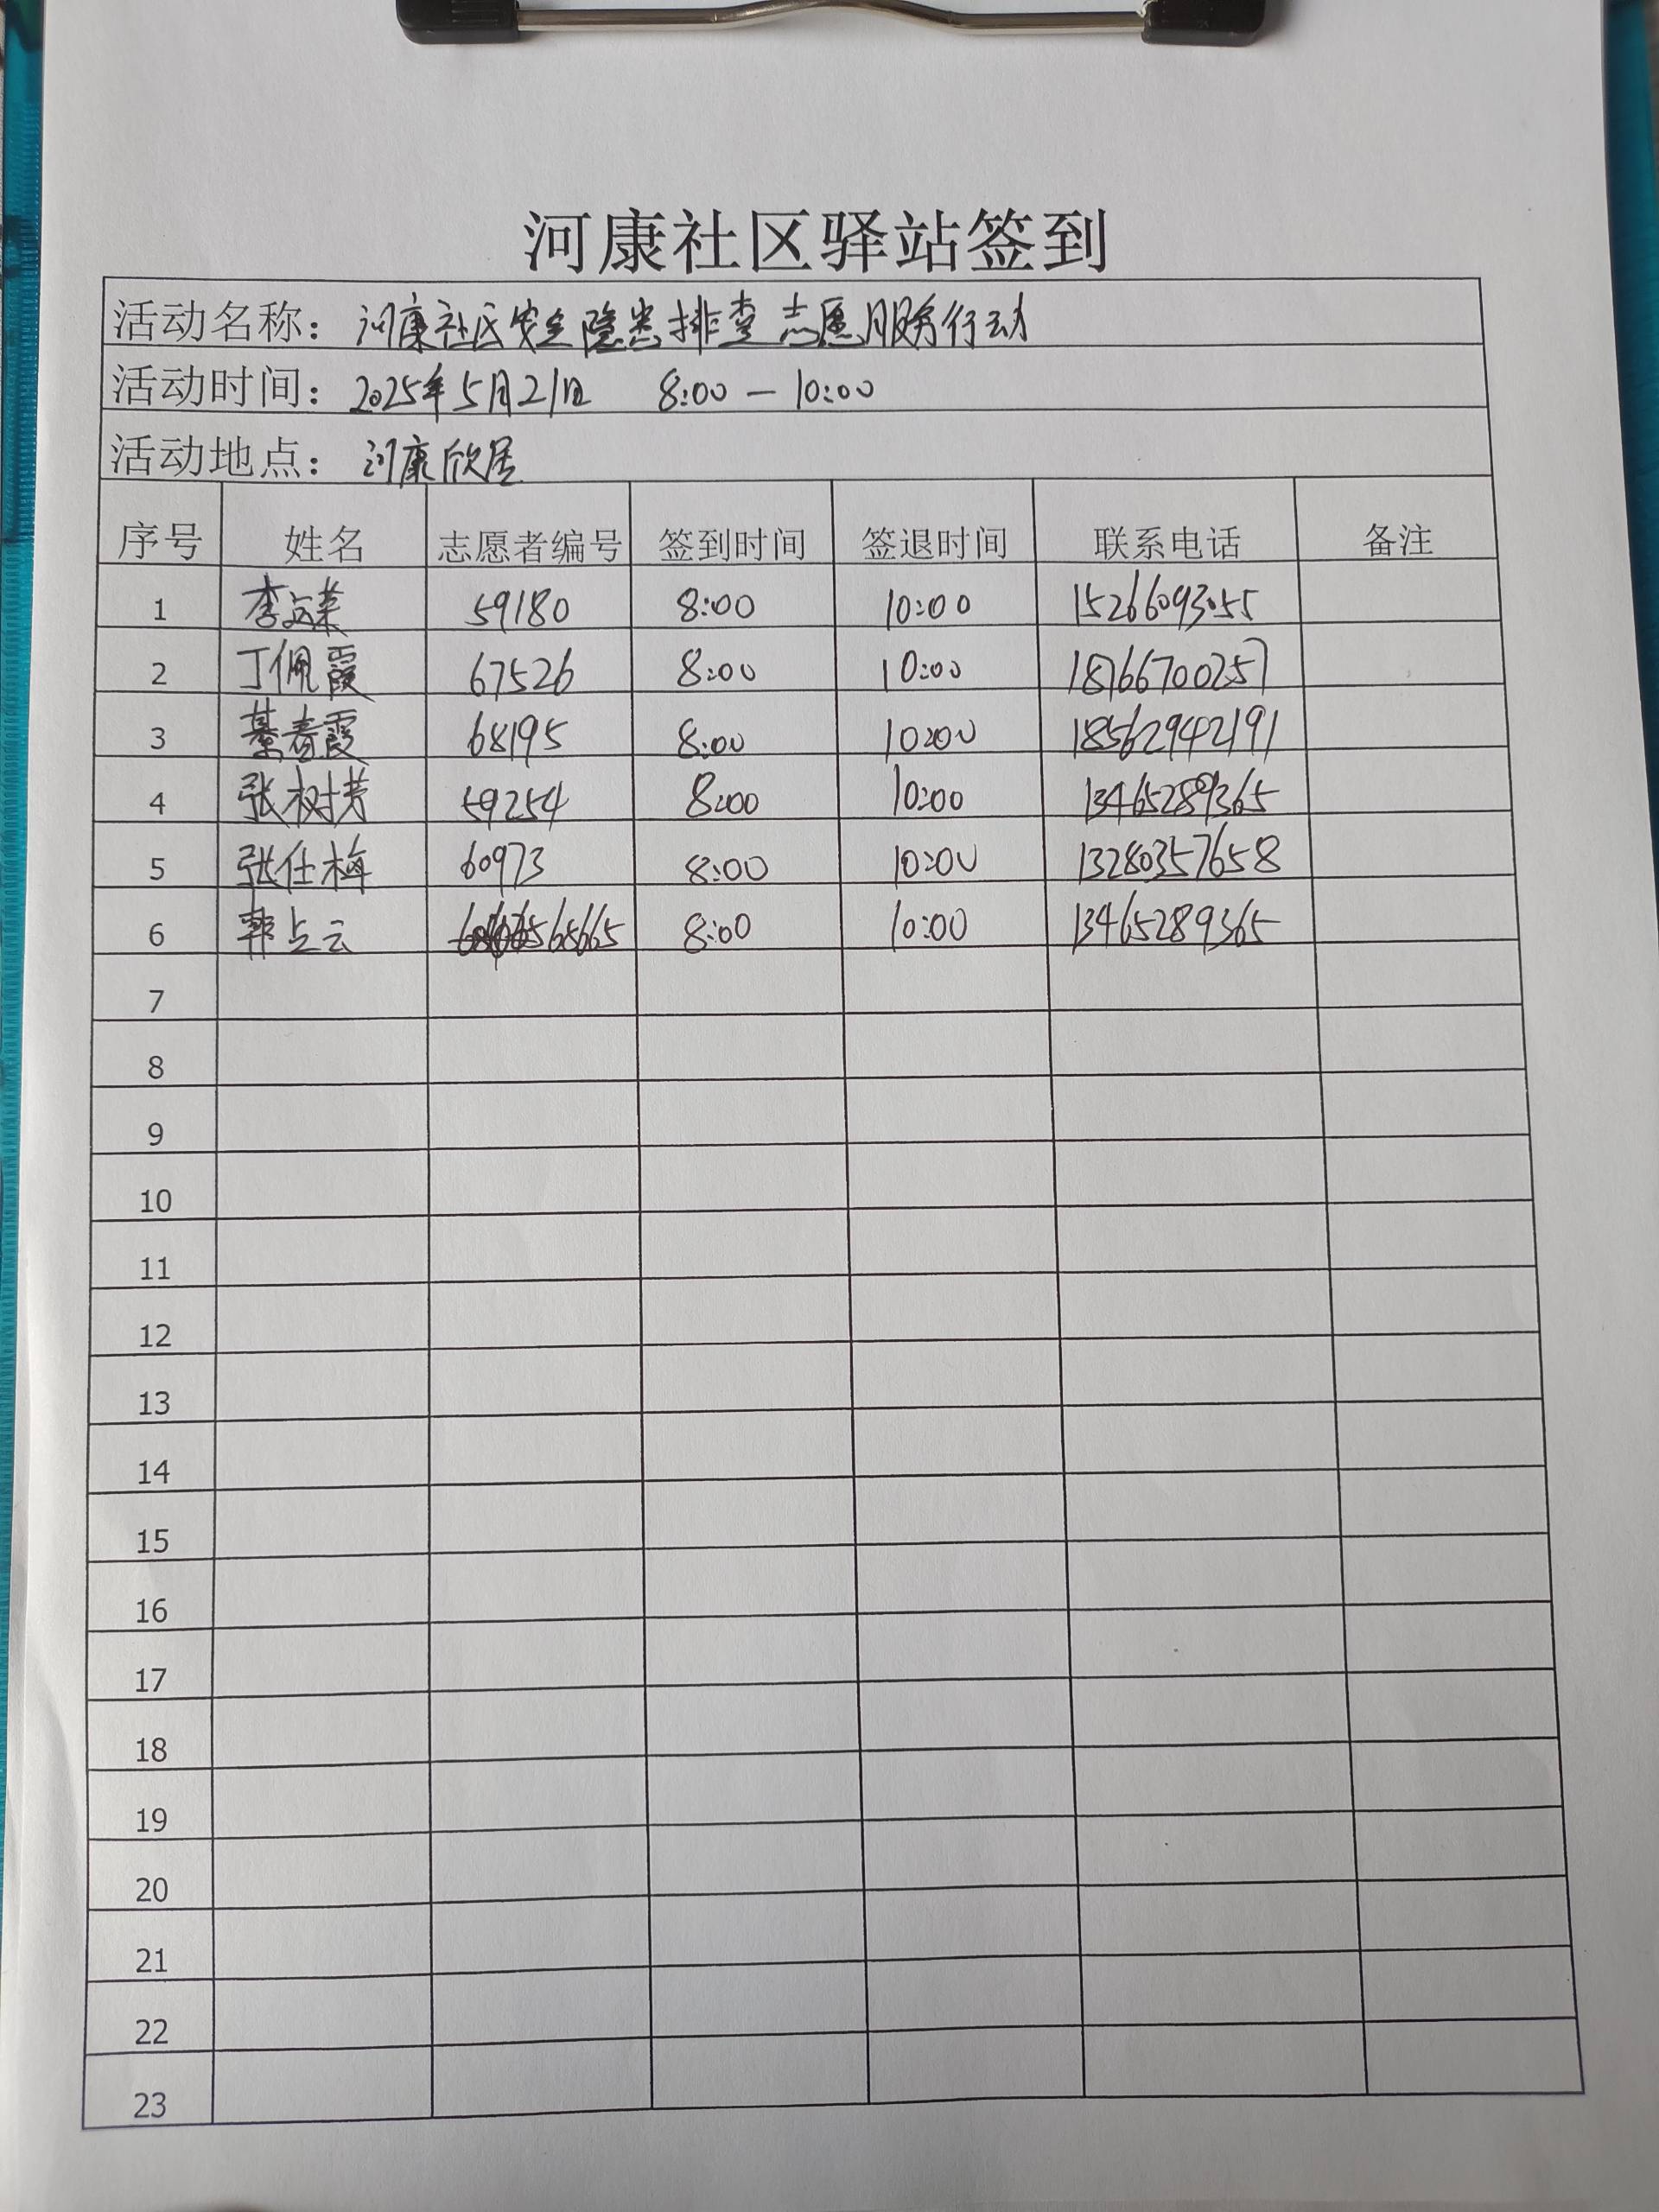 河康社区驿站签到
活动名称: 河康社区安全隐患排查志愿服务行动
活动时间: 2025年5月21日 8:00 — 10:00
活动地点: 河康欣居
序号 姓名 志愿者编号 签到时间 签退时间 联系电话 备注
1 李文荣 59180 8:00 10:00 15266093055
2 丁佩霞 67526 8:00 10:00 18766700257
3 綦春霞 68195 8:00 10:00 18562942191
4 张树芳 59254 8:00 10:00 13465289365
5 张仕梅 60973 8:00 10:00 13280357658
6 65665 8:00 10:00 13465289365
7
8
9
10
11
12
13
14
15
16
17
18
19
20
21
22
23